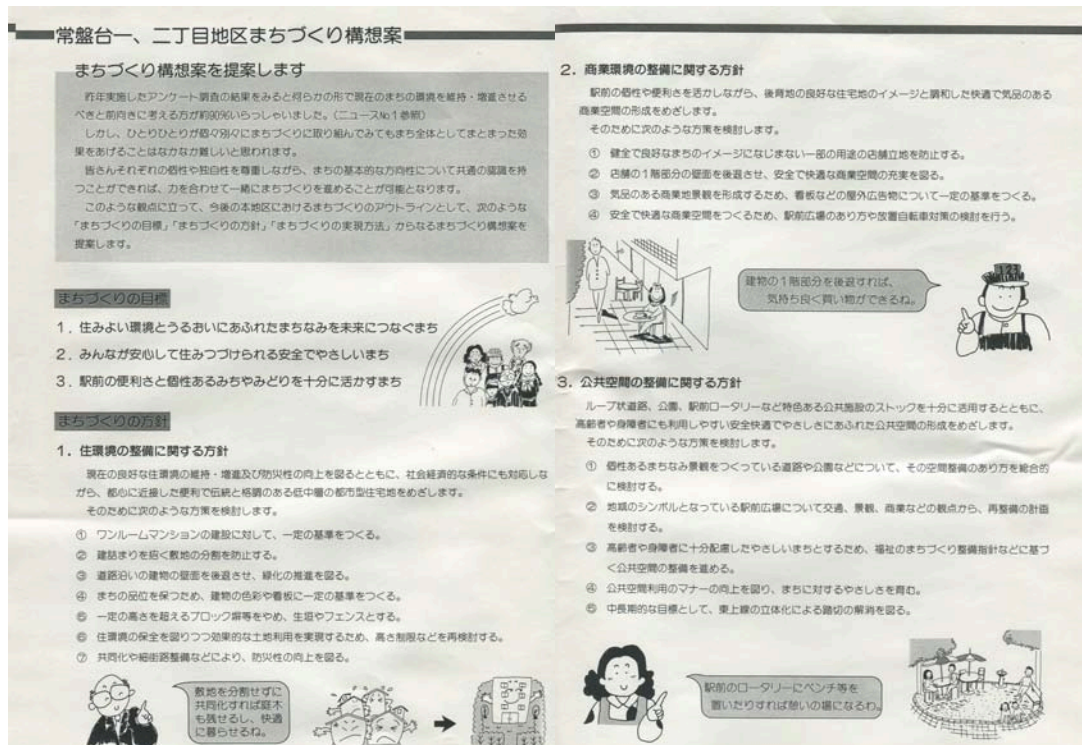 常盤台一、二丁目地区まちづくり構想案
まちづくり構想案を提案します
昨年実施したアンケート調査の結果をみると何らかの形で現在のまちの環境を維持・増進させる
べきと前向きに考える方が約90%いらっしゃいました。(ニュースNo1参照)
しかし、ひとりひとりが個々別々にまちづくりに取り組んでみてもまち全体としてまとまった効
果をあげることはなかなか難しいと思われます。
皆さんそれぞれの個性や独自性を尊重しながら、まちの基本的な方向性について共通の認識を持
つことができれば、力を合わせて一緒にまちづくりを進めることが可能となります。
このような観点に立って、今後の本地区におけるまちづくりのアウトラインとして、次のような
「まちづくりの目標」「まちづくりの方針」「まちづくりの実現方法」からなるまちづくり構想案を
提案します。
まちづくりの目標
1.住みよい環境とうるおいにあふれたまちなみを未来につなぐまち
2.みんなが安心して住みつづけられる安全でやさしいまち
3.駅前の便利さと個性あるみちやみどりを十分に活かすまち
まちづくりの方針
1.住環境の整備に関する方針
現在の良好な住環境の維持・増進及び防災性の向上を図るとともに、社会経済的な条件にも対応しな
がら、都心に近接した便利で伝統と格調のある低中層の都市型住宅地をめざします。
そのために次のような方策を検討します。
① ワンルームマンションの建設に対して、一定の基準をつくる。
② 建詰まりを招く敷地の分割を防止する。
③ 道路沿いの建物の壁面を後退させ、緑化の推進を図る。
④ まちの品位を保つため、建物の色彩や看板に一定の基準をつくる。
⑤ 一定の高さを超えるブロック塀等をやめ、生垣やフェンスとする。
⑥ 住環境の保全を図りつつ効果的な土地利用を実現するため、高さ制限などを再検討する。
⑦ 共同化や細街路整備などにより、防災性の向上を図る。
敷地を分割せずに
共同化すれば庭木
も残せるし、快適
に暮らせるね。
2.商業環境の整備に関する方針
駅前の個性や便利さを活かしながら、後背地の良好な住宅地のイメージと調和した快適で気品のある
商業空間の形成をめざします。
そのために次のような方策を検討します。
① 健全で良好なまちのイメージになじまない一部の用途の店舗立地を防止する。
② 店舗の1階部分の壁面を後退させ、安全で快適な商業空間の充実を図る。
③ 気品のある商業地景観を形成するため、看板などの屋外広告物について一定の基準をつくる。
④ 安全で快適な商業空間をつくるため、駅前広場のあり方や放置自転車対策の検討を行う。
建物の1階部分を後退すれば、
気持ち良く買い物ができるね。
123
3.公共空間の整備に関する方針
ループ状道路、公園、駅前ロータリーなど特色ある公共施設のストックを十分に活用するとともに、
高齢者や身障者にも利用しやすい安全快適でやさしさにあふれた公共空間の形成をめざします。
そのために次のような方策を検討します。
① 個性あるまちなみ景観をつくっている道路や公園などについて、その空間整備のあり方を総合的
に検討する。
② 地域のシンボルとなっている駅前広場について交通、景観、商業などの観点から、再整備の計画
を検討する。
③ 高齢者や身障者に十分配慮したやさしいまちとするため、福祉のまちづくり整備指針などに基づ
く公共空間の整備を進める。
④ 公共空間利用のマナーの向上を図り、まちに対するやさしさを育む。
⑤ 中長期的な目標として、東上線の立体化による踏切の解消を図る。
駅前のロータリーにベンチ等を
置いたりすれば憩いの場になるわ。